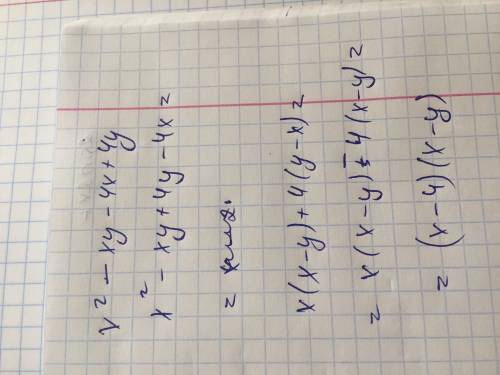 x² - xy - 4x + 4y
x² - xy + 4y - 4x =
=
x(x-y) + 4(y-x) =
= x(x-y) - 4(x-y) =
= (x-4)(x-y)